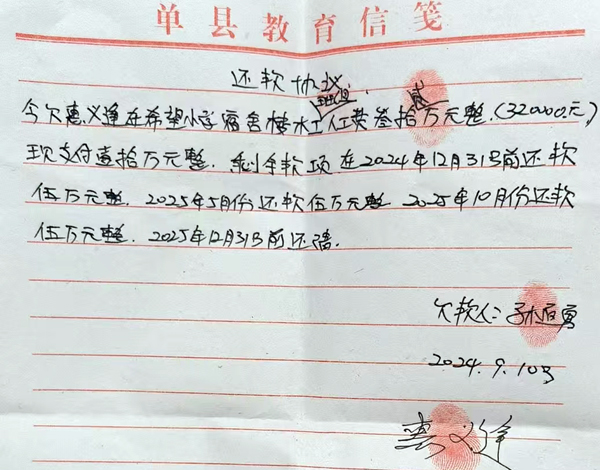 单县教育信笺
还款协议
今欠惠义逢在希望小学宿舍楼水工人工费叁拾贰万元整.(320000.元)
现支付壹拾万元整.剩余款项在2024年12月31号前还款
伍万元整.2025年5月份还款伍万元整 2025年10月份还款
伍万元整.2025年12月31号前还清.
欠款人: 孙 勇
2024.9.10号
惠义逢